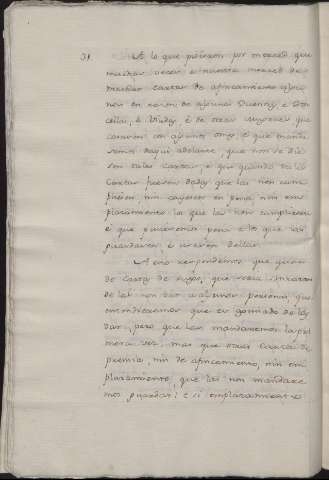 31. A lo que pidieron por merced que
muchas veces a nuestra merced de
mandar cartas de afincamiento
non en razon de algunas Dueñas, e Don
cellas, e Viudas, e de otras mugeres que
casaren con algunos omes, e que manda
semos daqui adelante, que non se die
sen tales cartas, e que quando tales
cartas fueren dadas que las non cum
pliesen, nin cayesen en pena, nin em
plazamiento los que las non cumpliesen
e que pusiesemos pena a los que las
guardaren, e usaren dellas.
A esto respondemos que quan
do carta de ruego, que nos
de las non dar a algunas personas, que
entendieremos que es guisado de las
dar, pero que las mandaremos la pri
mera vez, mas que otras cartas de
premia, nin de afincamiento, nin em
plazamiento, que las non mandare
mos guardar: e si emplazamientos